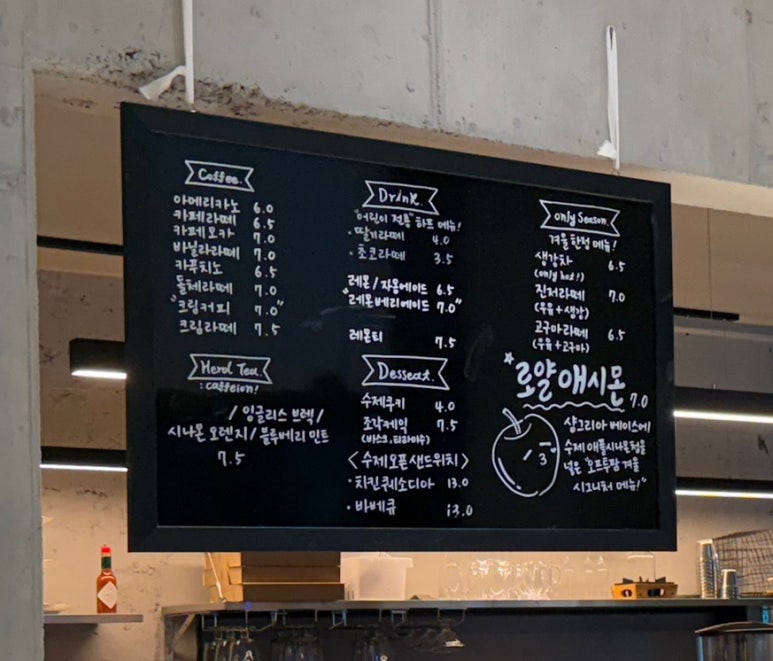 Coffee.
아메리카노 6.0
카페라떼 6.5
카페모카 7.0
바닐라라떼 7.0
카푸치노 6.5
돌체라떼 7.0
"크림커피 7.0"
크림라떼 7.5
Herd Tea.
: caffeion!
/ 잉글리스 브렉 /
시나몬 오렌지 / 블루베리 민트
7.5
Drink.
"어린이 전용" 하프 메뉴!
· 딸기라떼 4.0
· 초코라떼 3.5
레몬 / 자몽에이드 6.5
"레몬베리에이드 7.0"
레몬티 7.5
Desseat.
수제쿠키 4.0
조각케익 7.5
(바스크, 티라미수)
<수제 오픈 샌드위치>
· 치킨퀘소디아 13.0
· 바베큐 13.0
only Season.
겨울 한정 메뉴!
생강차 6.5
(only hot!)
진저라떼 7.0
(우유 + 생강)
고구마라떼 6.5
(우유 + 고구마)
로얄 애시몬 7.0
샹그리아 베이스에
수제 애플시나몬청을
넣은 "오프투팜 겨울
시그니처 메뉴!"